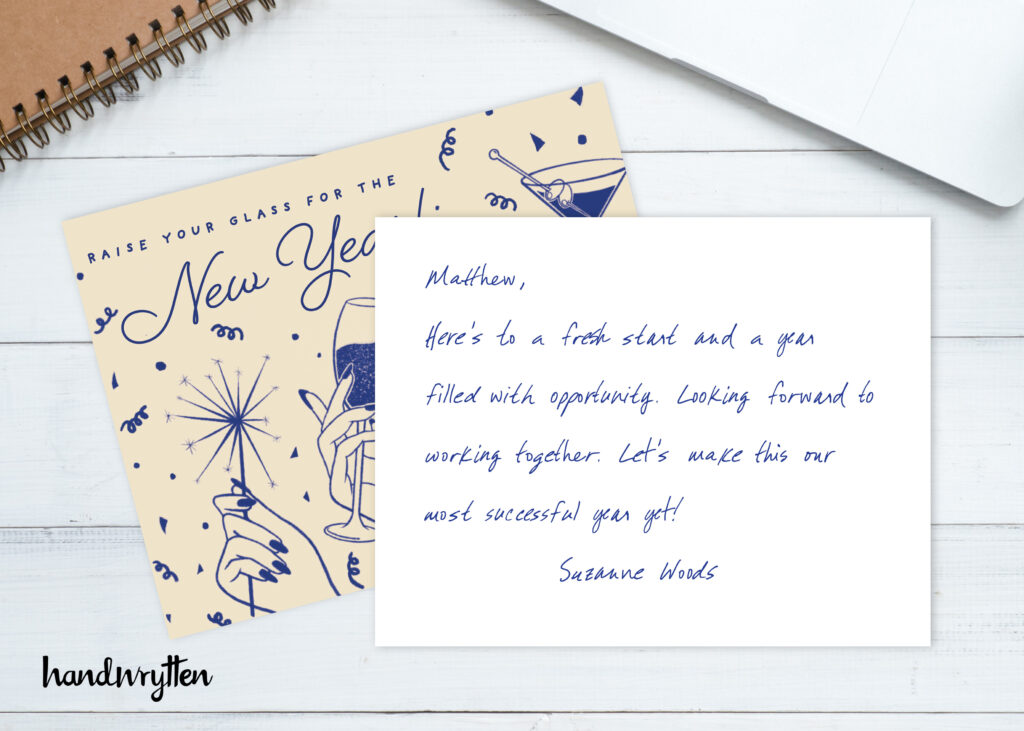 RAISE YOUR GLASS FOR THE
New Year!
Matthew,
Here's to a fresh start and a year
filled with opportunity. Looking forward to
working together. Let's make this our
most successful year yet!
Suzanne Woods
handwrytten